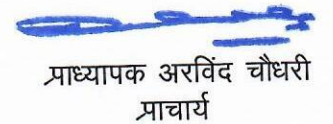 प्राध्यापक अरविंद चौधरी
प्राचार्य